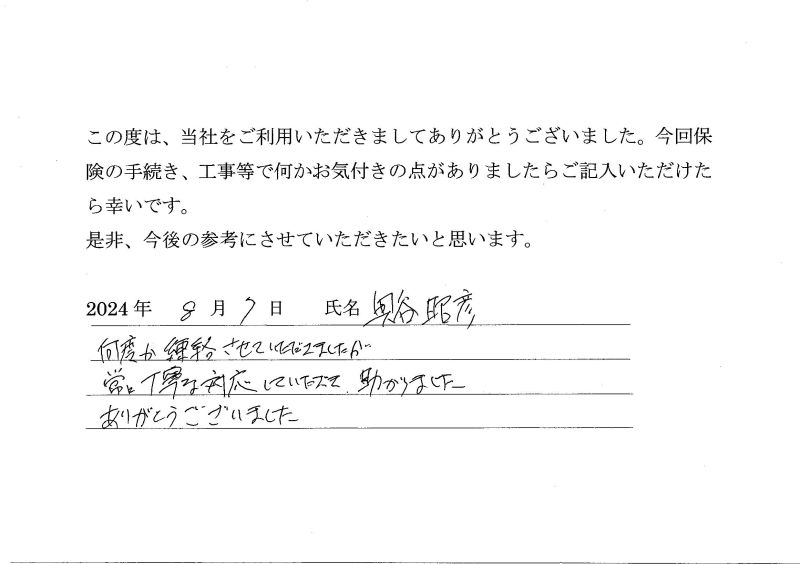 この度は、当社をご利用いただきましてありがとうございました。今回保
険の手続き、工事等で何かお気付きの点がありましたらご記入いただけた
ら幸いです。
是非、今後の参考にさせていただきたいと思います。
2024年 8月7日 氏名 奥谷 昭彦
何度か連絡させていただきましたが
常に丁寧な対応していただき、助かりました
ありがとうございました